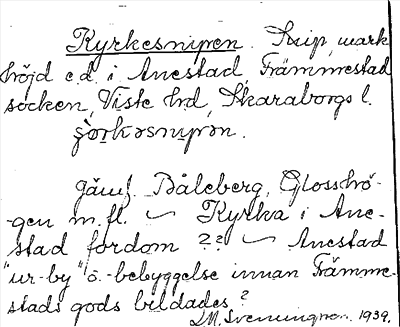 Kyrkesnipen. Snip, mark
höjd e.d. i Anestad, Främmestad
socken, Viste hd, Skaraborgs l.
ȿorkəsnipən.
Jämf. Båleberg, Glosshö-
-gen m.fl. ~ Kyrka i Ane-
stad fordom ?? ~ Anestad
"ur-by" o.-bebyggelse innan Främme-
stads gods bildades?
1939.